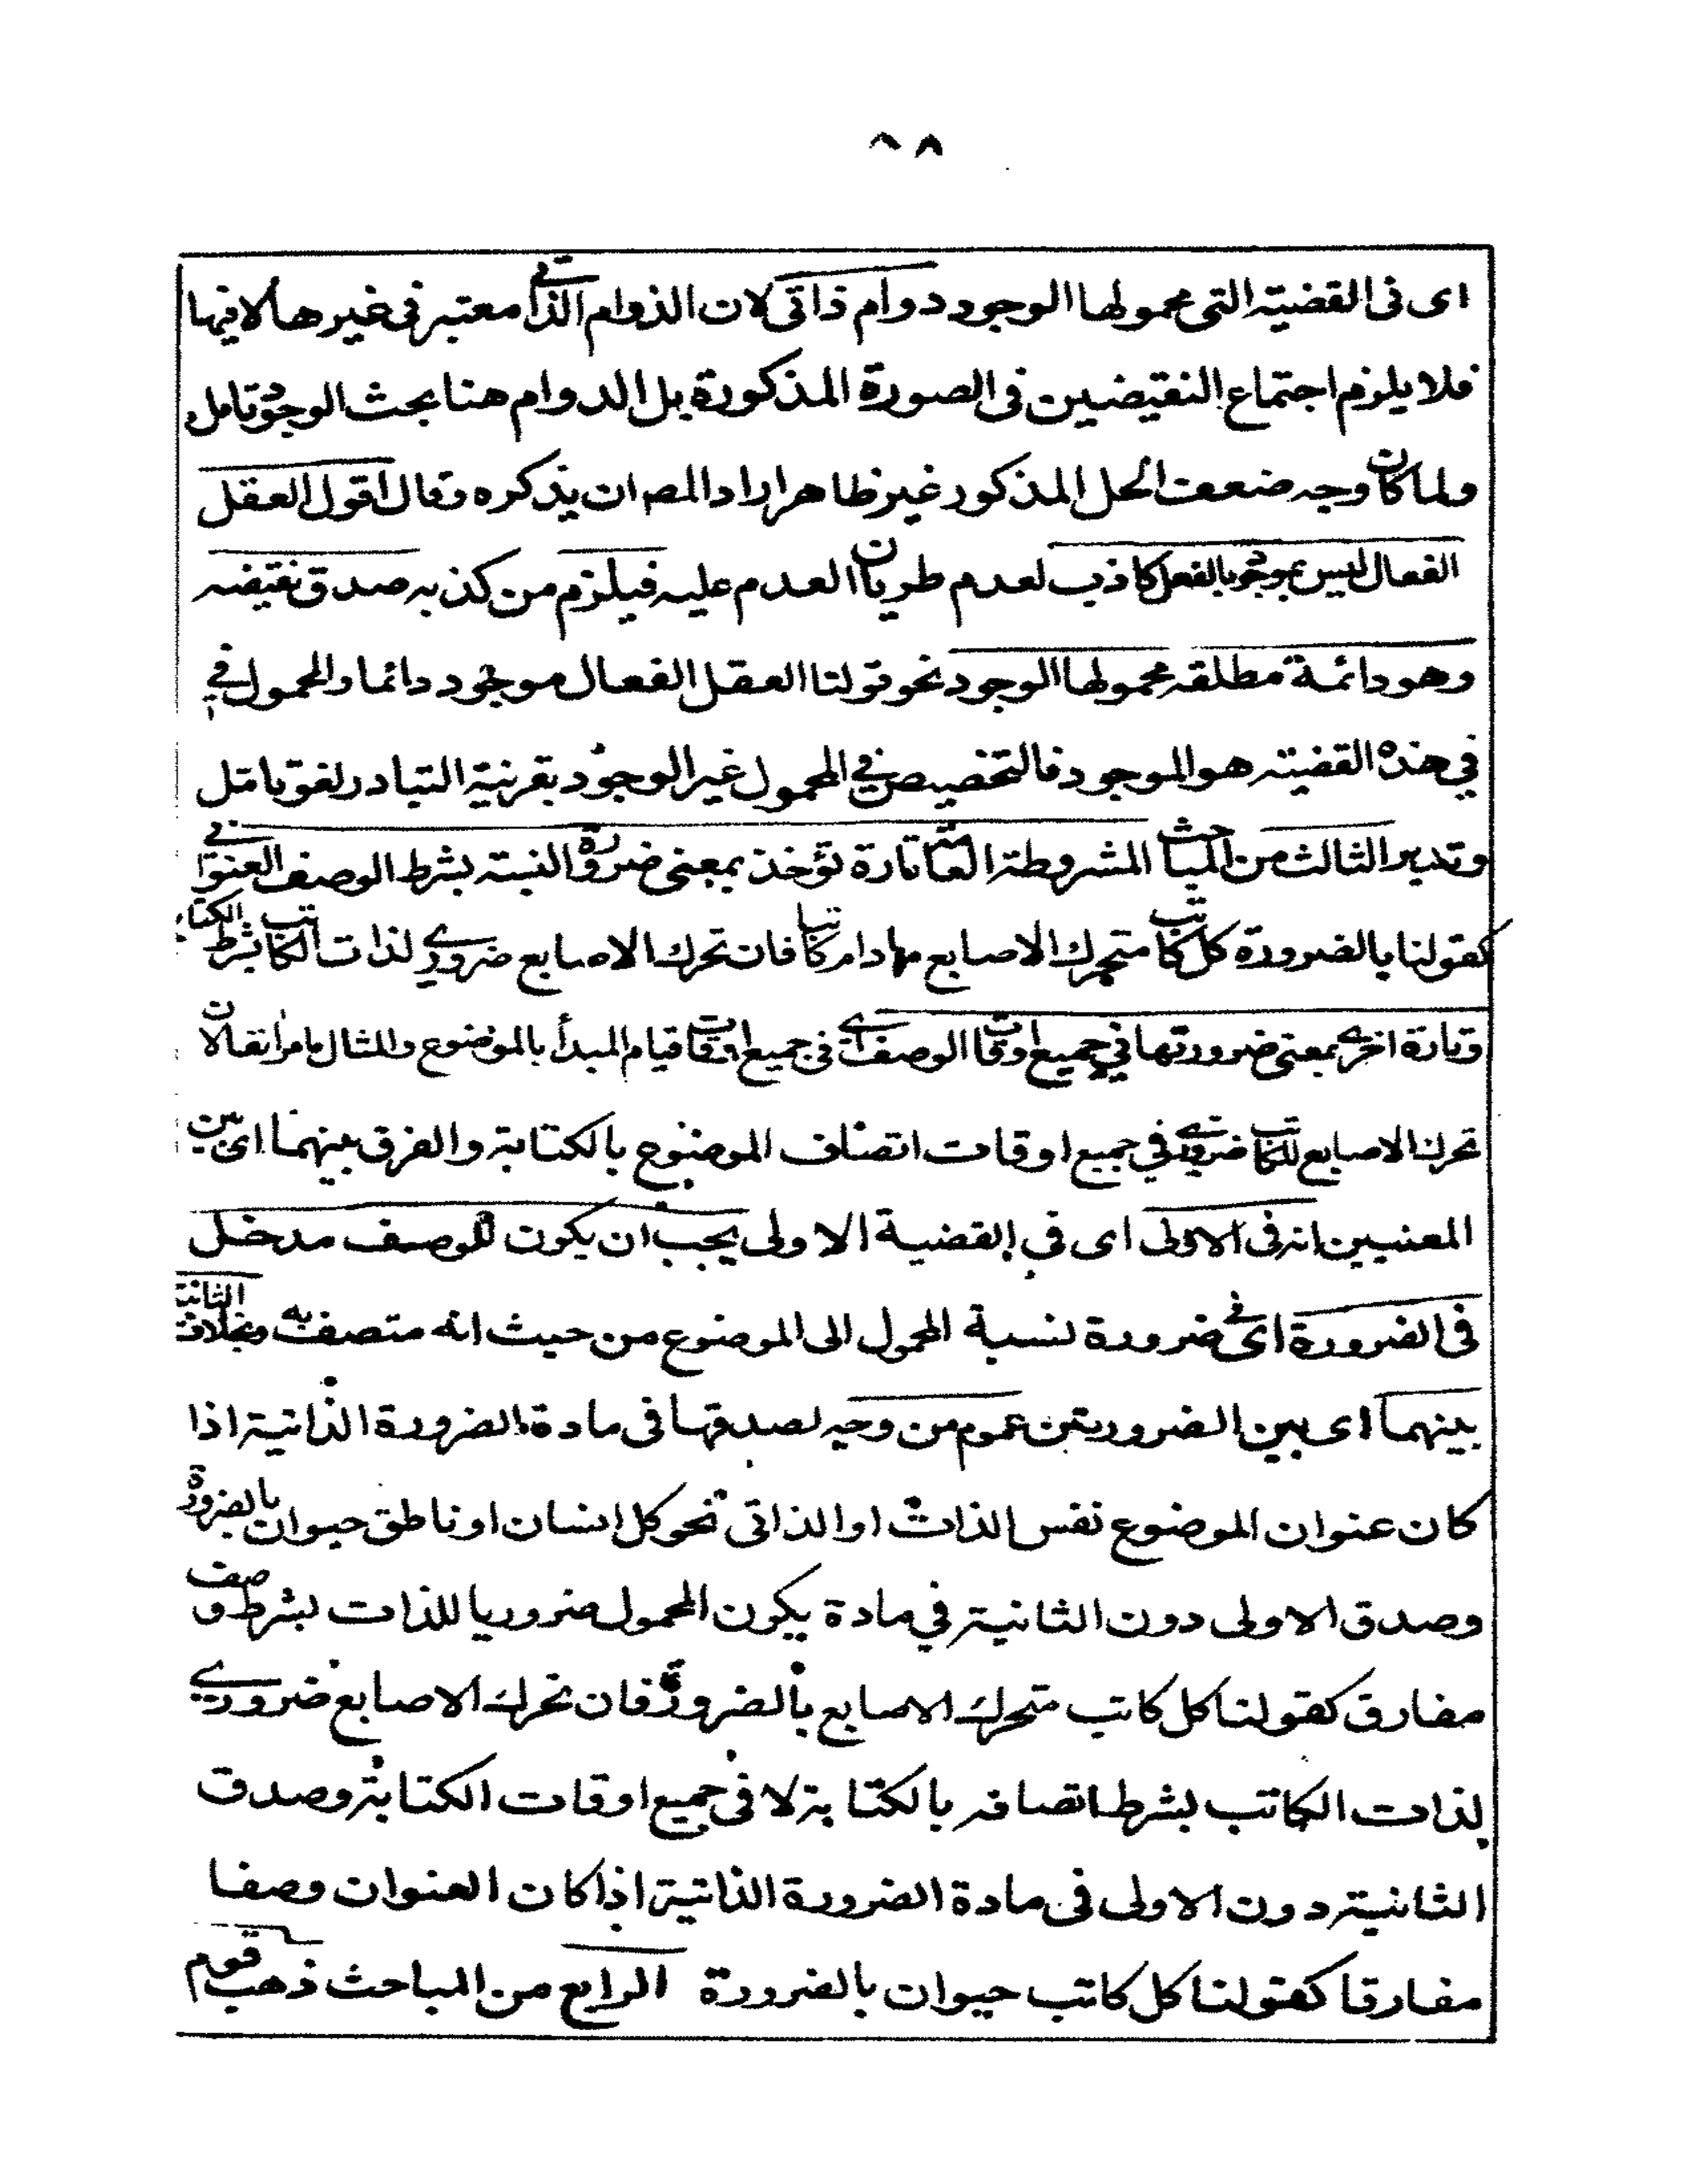 ٨٨
اى فى القضيته التى محمولها الوجود دوام ذاتى لان الدوام الذاتى معتبر فى غيرها لا فيها
فلا يلزم اجتماع النقيضين فى الصورة المذكورة بل الدوام هنا بحث الوجود تامل
ولما كان وجه ضعف الحل المذكور غير ظاهر اراد المص ان يذكره وقال اقول العقل
الفعال ليس بموجود بالفعل كاذب لعدم طريان العدم عليه فيلزم من كذبه صدق نقيضه
وهو دائمة مطلقه محمولها الوجود نحو قولنا العقل الفعال موجود دائما والمحمول فى
فى هذه القضيته هو الموجود فالتخصيص فى المحمول غير الوجود بقرنية التبادر لغو تامل
المشروطة العامة تارة تؤخذ بمعنى ضرورة النسبة بشرط الوصف العنوانى
كقولنا بالضرورة كل كاتب متحرك الاصابع مادام كاتبا فان تحرك الاصابع ضرورى لذات الكاتب بشرط الكتابة
وتارة اخرى بمعنى ضرورتها فى جميع اوقات الوصف اى فى جميع اوقات قيام المبدأ بالموضوع والمثال
تحرك الاصابع للكاتب ضرورى فى جميع اوقات اتصاف الموضوع بالكتابة والفرق بينهما اى بين
المعنيين انه فى الاولى اى فى القضية الاولى يجب ان يكون للوصف مدخل
فى الضرورة اى فى ضرورة نسبة المحمول الى الموضوع من حيث انه متصف به وبخلاف الثانية
بينهما اى بين الضروريتين عموم من وجه لصدقها فى مادة الضرورة الذاتية اذا
كان عنوان الموضوع نفس الذات او الذاتى نحو كل انسان او ناطق حيوان بالضرورة
وصدق الاولى دون الثانية فى مادة يكون المحمول ضروريا للذات بشرط وصف
مفارق كقولنا كل كاتب متحرك الاصابع بالضرورة فان تحرك الاصابع ضرورى
لذات الكاتب بشرط اتصافه بالكتابة لا فى جميع اوقات الكتابة وصدق
الثانية دون الاولى فى مادة الضرورة الذاتية اذا كان العنوان وصفا
مفارقا كقولنا كل كاتب حيوان بالضرورة الرابع من المباحث ذهب قوم